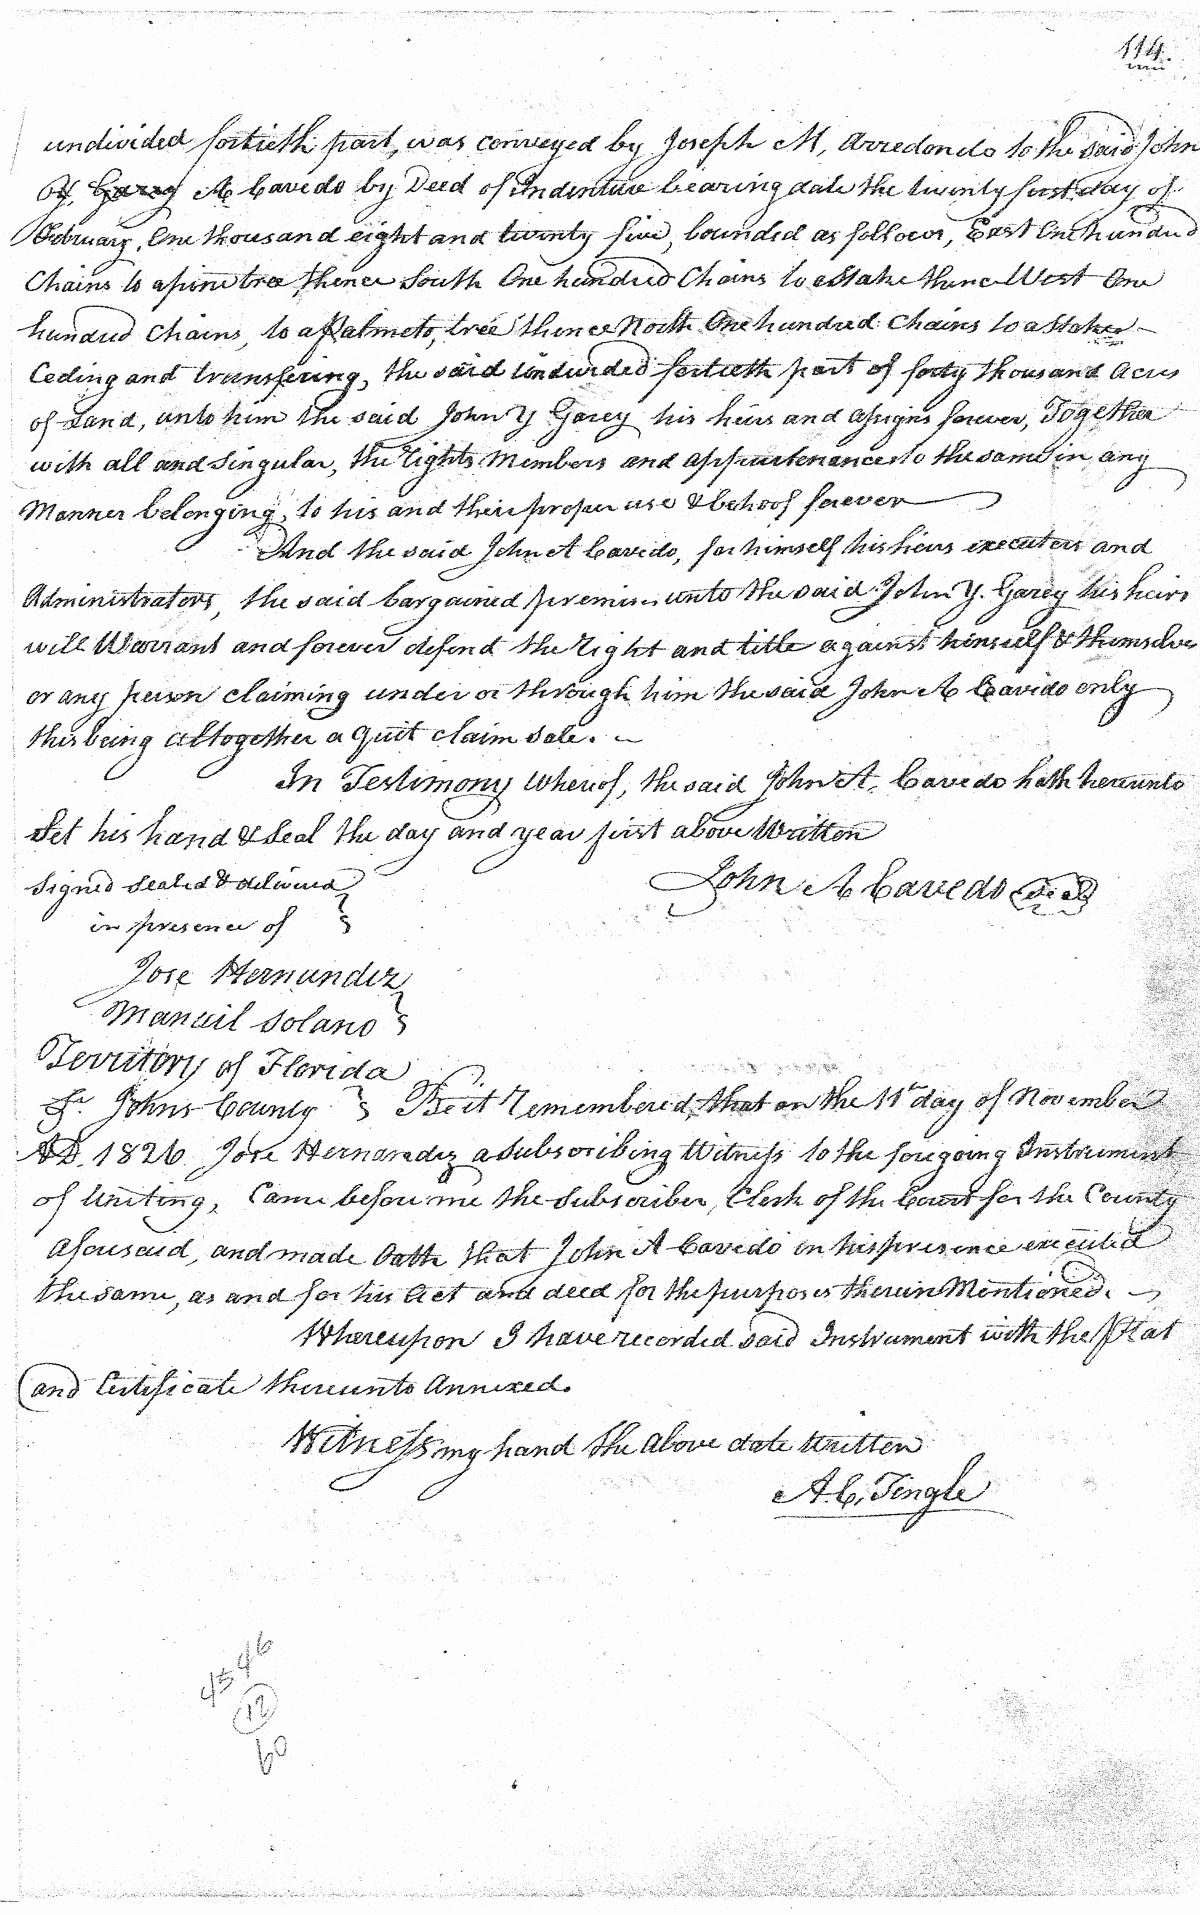 114.
undivided fortieth part, was conveyed by Joseph M, Arredondo to the said John
A Cavedo by Deed of Indenture bearing date the twenty first day of
February, One thousand eight and twenty five, bounded as follows, East One hundred
Chains to a pine tree, thence South One hundred Chains to a Stake thence West One
hundred Chains, to a Palmeto, tree thence North One hundred Chains to a Stake—
Ceding and transfering, the said undivided fortieth part of forty thousand acres
of Land, unto him the said John Y Garey his heirs and assigns forever, Together
with all and Singular, the rights Members and appurtenances to the same in any
Manner belonging, to his and their proper use & behoof forever
And the said John A Cavedo, for himself his heirs executers and
Administrators, the said bargained premises unto the said John Y. Garey his heirs
will Warrant and forever defend the right and title against himself & themselves
or any person claiming under or through him the said John A Cavedo only
this being altogether a quit claim sale. ~
In Testimony Whereof, the said John A, Cavedo hath hereunto
Set his hand & Seal the day and year first above Written
Signed Sealed & delivered John A Cavedo Seal
in presence of
Jose Hernandez
Manuil Solano
Territory of Florida
St. Johns County } Be it remembered, that on the 11th day of November
AD, 1826 Jose Hernandez a subscribing Witness to the foregoing Instrument
of Writing, Came before me the Subscriber, Clerk of the Court for the County
aforesaid, and made Oath that John A Cavedo in his presence executed
the same, as and for his act and deed for the purposes therein Mentioned.
Whereupon I have recorded said Instrument with the Plat
and Certificate thereunto Annexed.
Witness my hand the above date written
A. C, Tingle
45 46
12
60